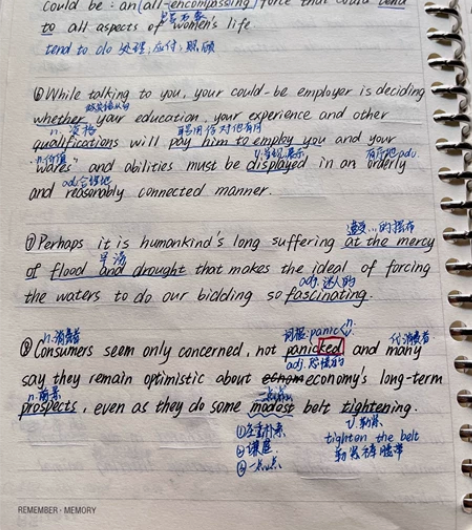 could be : an (all-encompassing) force that could tend
to all aspects of women's life
tend to do 处理;应付;照顾
⑥While talking to you, your could-be employer is deciding
whether your education, your experience and other
n. 资格
qualifications will pay him to employ you and your
n. 价值 v. 展现,展示
"wares" and abilities must be displayed in an orderly
adj. 合理地
and reasonably connected manner.
遭受…的摆布
⑦Perhaps it is humankind's long suffering at the mercy
旱涝
of flood and drought that makes the ideal of forcing
adj. 迷人的
the waters to do our bidding so fascinating.
n. 消费者 词根:panic n. 代 消费者
⑧Consumers seem only concerned, not panicked and many
adj. 恐慌的
say they remain optimistic about economy's long-term
n. 前景 一点点
prospects, even as they do some modest belt tightening.
v. 勒紧
①朴素
②谦虚
③一点点
tighten the belt
勒紧裤腰带
REMEMBER · MEMORY